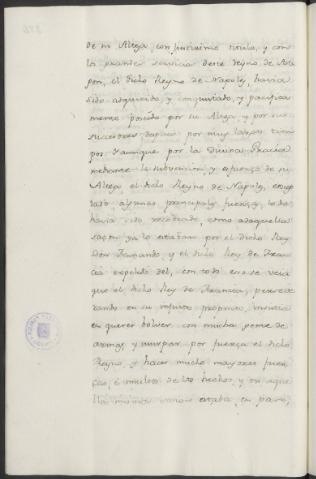 de su Alteza, con justissimo titulo, y con
los grandes servicios deste Reyno de Ara
gon, el dicho Reyno de Napoles, havia
sido adquirido y conquistado, y pacifica
mente posehido por su Alteza y por sus
successores despues por muy largos tiem
pos. Y aunque por la Divina Gracia
mediante la subvencion y esfuerzo de su
Alteza el dicho Reyno de Napoles, excep
tado algunas principales fuerzas, todo
havia sido recobrado, como a daquella
sazon ya lo estaban por el dicho Rey
Don Fernando, y el dicho Rey de Fran
cia expelido del, con todo era de veer
que el dicho Rey de Francia, perseve
rando en su injusto proposito, insistia
en querer bolver con mucha gente de
armas, y usurpar por fuerza el dicho
Reyno, y hacer mucho mayores fuer
zas, e insultos de los hechos, y en aque
lla misma sazon estaba, en parte,